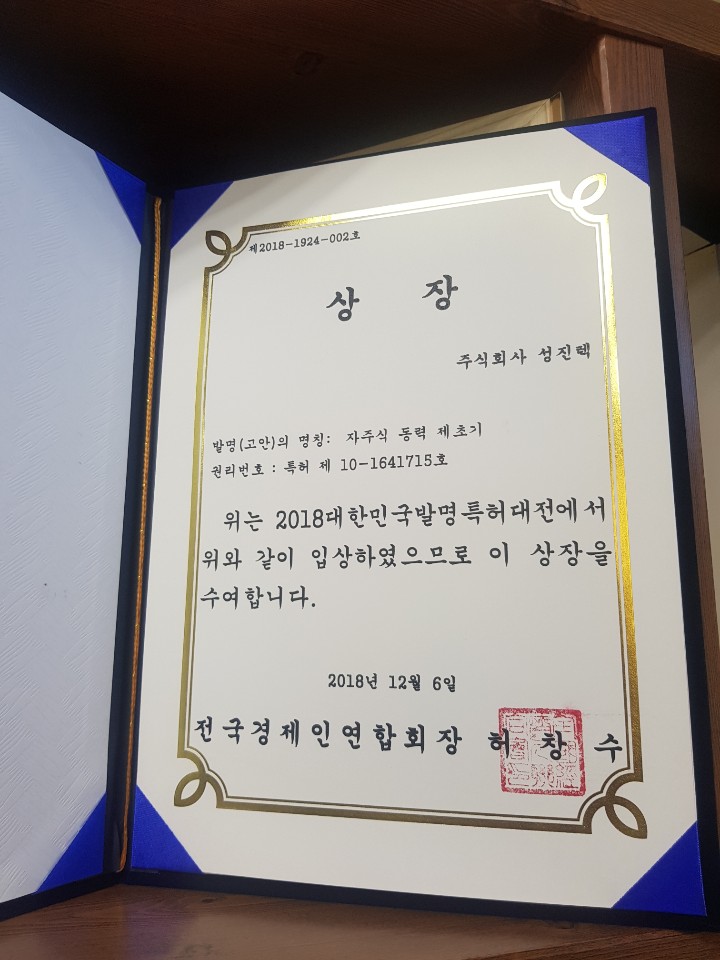 제2018-1924-002호
상 장
주식회사 성진텍
발명(고안)의 명칭: 자주식 동력 제초기
권리번호 : 특허 제 10-1641715호
위는 2018대한민국발명특허대전에서
위와 같이 입상하였으므로 이 상장을
수여합니다.
2018년 12월 6일
전국경제인연합회장 허 창 수